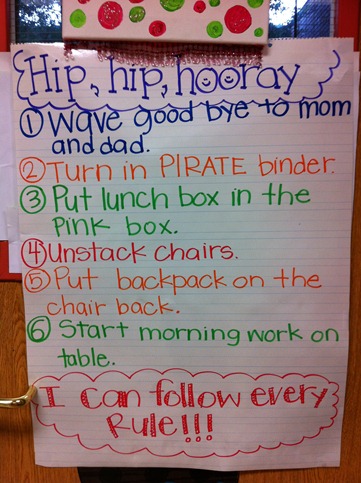 Hip, hip, hooray
① Wave good bye to mom
and dad.
② Turn in PIRATE binder.
③ Put lunch box in the
Pink box.
④ Unstack chairs.
⑤ Put backpack on the
chair back.
⑥ Start morning work on
table.
I can follow every
Rule!!!